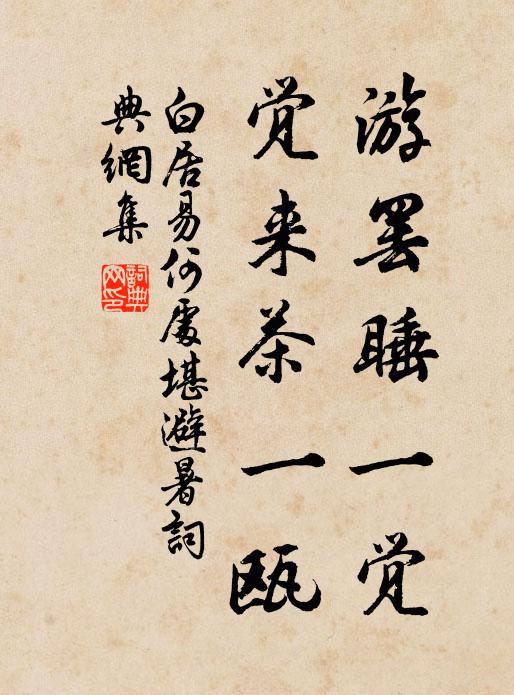 游罢睡一觉
觉来茶一瓯
白居易何處堪避暑詞
典網集
詞典
网印